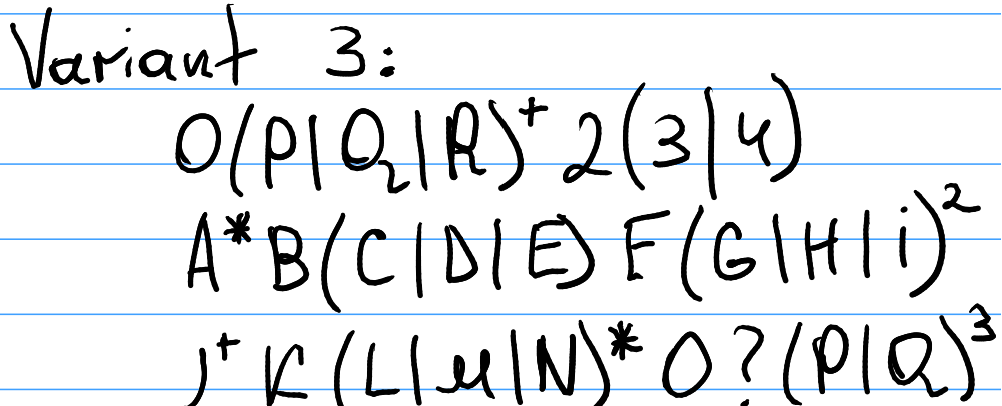 Variant 3:
O(P|Q|R)⁺ 2(3|4)
A*B(C|D|E) F(G|H|i)²
J⁺K(L|M|N)*O?(P|Q)³